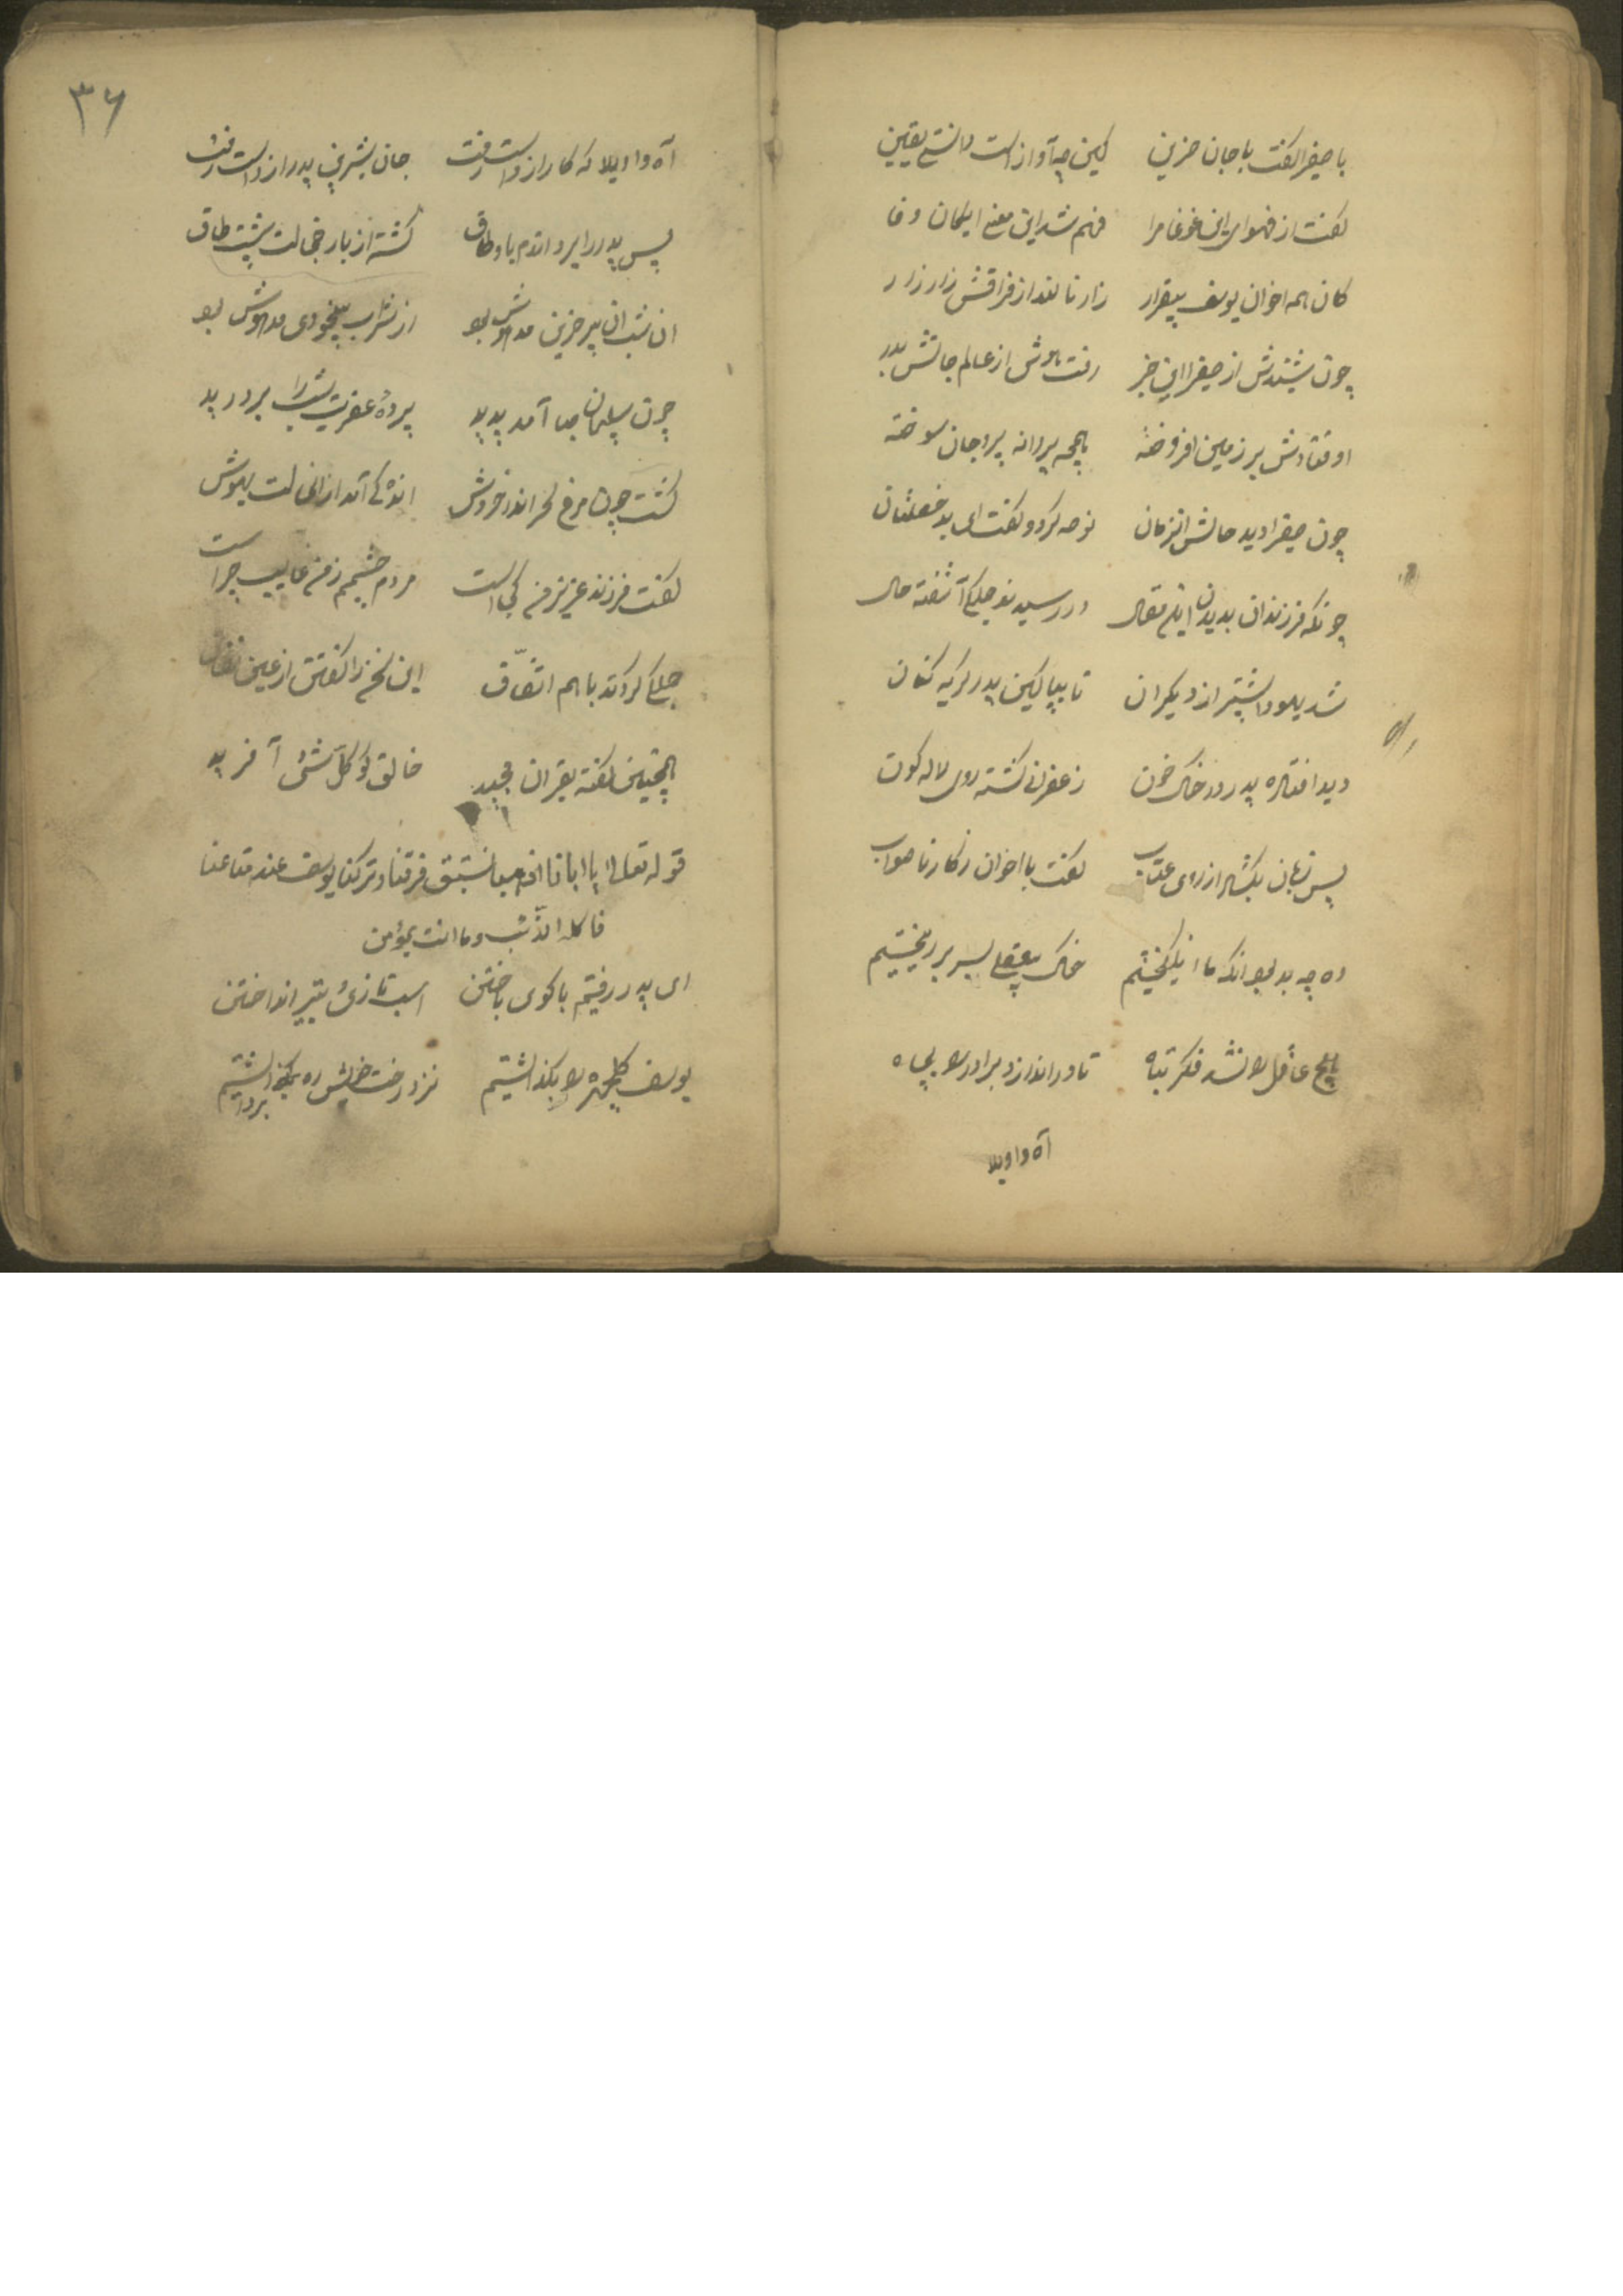 با صفرا گفت با جان حزین کین چه آواز است دانستی یقین
گفت از فحوای این غوغا مرا فهم شد این معنی ایخان وفا
کان همه اخوان یوسف بیقرار زار نالند از فراقش زار زار
چون شنیدش از صفرا این خبر رفت هوش از عالم جانش بدر
اوفتادش بر زمین افروخته همچه پروانه پر و جان سوخته
چون صفرا دید حالش انزمان نوحه کرد و گفت ای بد خصلتان
چونکه فرزندان بدیدن این مقال در رسیدند جملگی آشفته حال
شد یهودا پیشتر از دیگران تا بیا لین پدر گریه کنان
دید افتاده پدر در خاک خون زعفران گشته روی لاله کون
پس زبان بگشاد از روی عتاب گفت با اخوان ز کار ناصواب
وه چه بد بود انکه ما انگیختیم خاک بر سر ریختیم
هیچ عاقل را نشد فکر تباه تا در اندازد برادر را بچاه
آه واویلا
۳۶
آه واویلا که کار از دست رفت جان شیرین پدر از دست رفت
پس پدر را بردندم با وطاق گشته از بار خجالت پشت طاق
ان شب ان پیر حزین مدهوش بود از شراب بیخودی مدهوش بود
چون سلیمان صبا آمد پدید پرده عفریت شب را بر درید
گشت چون مرغ سحر اندر خروش اندکی آمد ازان حالت بهوش
گفت فرزند عزیز من کجاست مردم چشمم ز من غایب چراست
جملگی کردند با هم اتّفاق این سخن را گفتن از عین نفاق
همچنین گفته بقران مجید خالق کو کلّ شئ آفرید
قوله تعالی یا ابانا انا ذهبنا نستبق فرقنا و ترکنا یوسف عند متاعنا
فاکله الذّئب و ما انت بمؤمن
ای پدر رفتیم با کوی باختن اسب تازی تیر انداختن
یوسف گلچهره را بگذاشتیم نزد رخت خویش ره برداشتیم